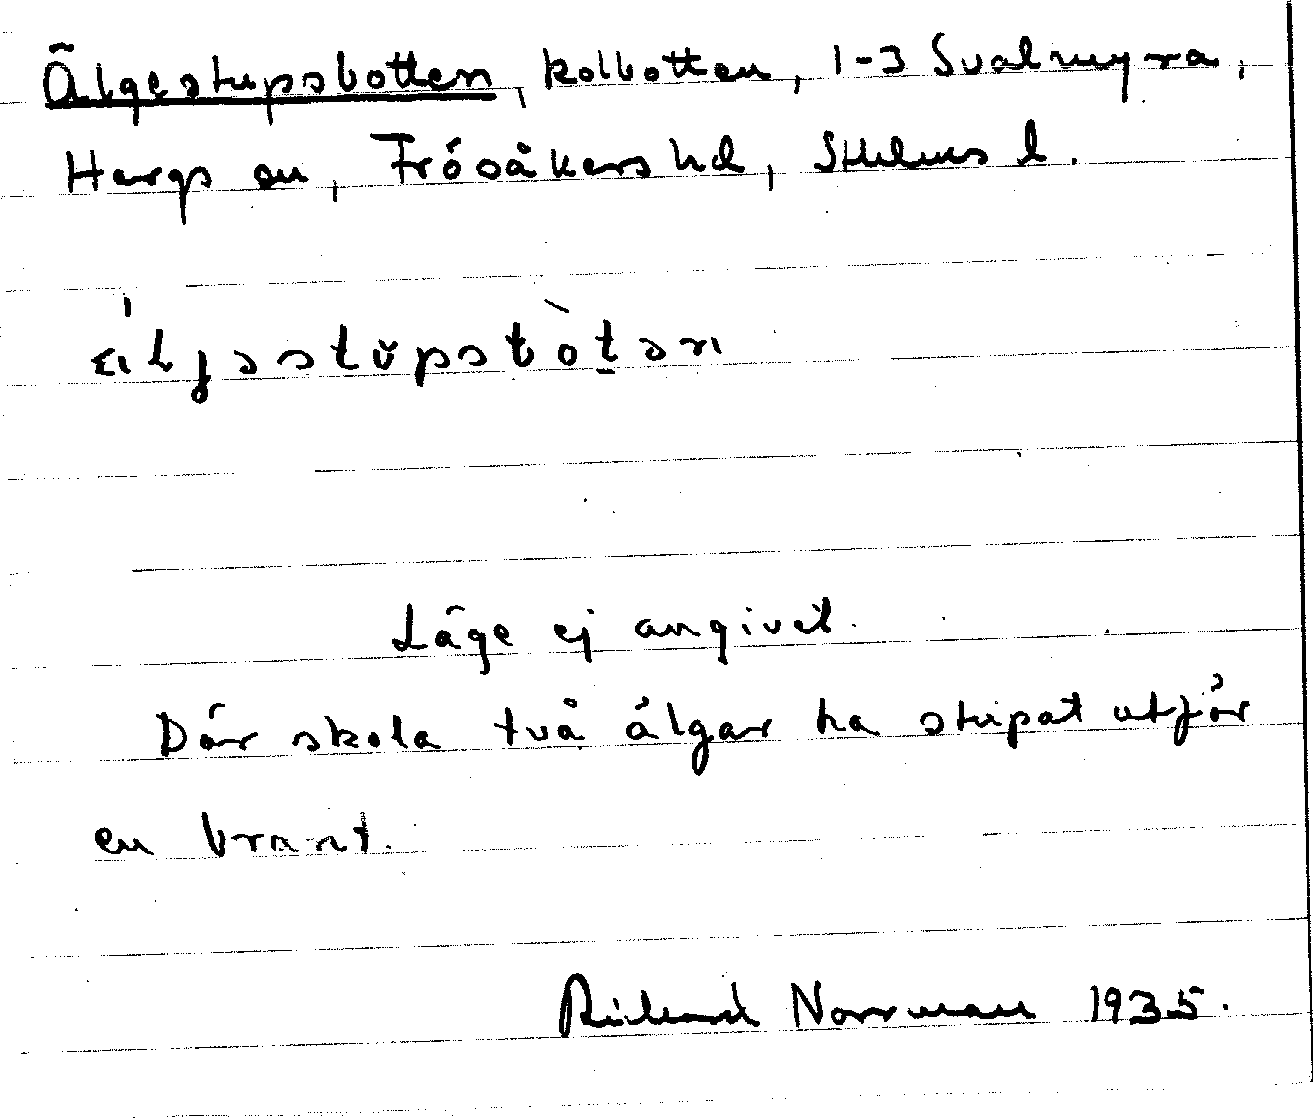 Älgestupsbotten, kolbotten, 1-3 Svalmyra,
Hargs sn, Frösåkers hd, Sthlms l.
Läge ej angivet.
Där skola två älgar ha stupat utför
en brant.
Richard Norrman 1935.